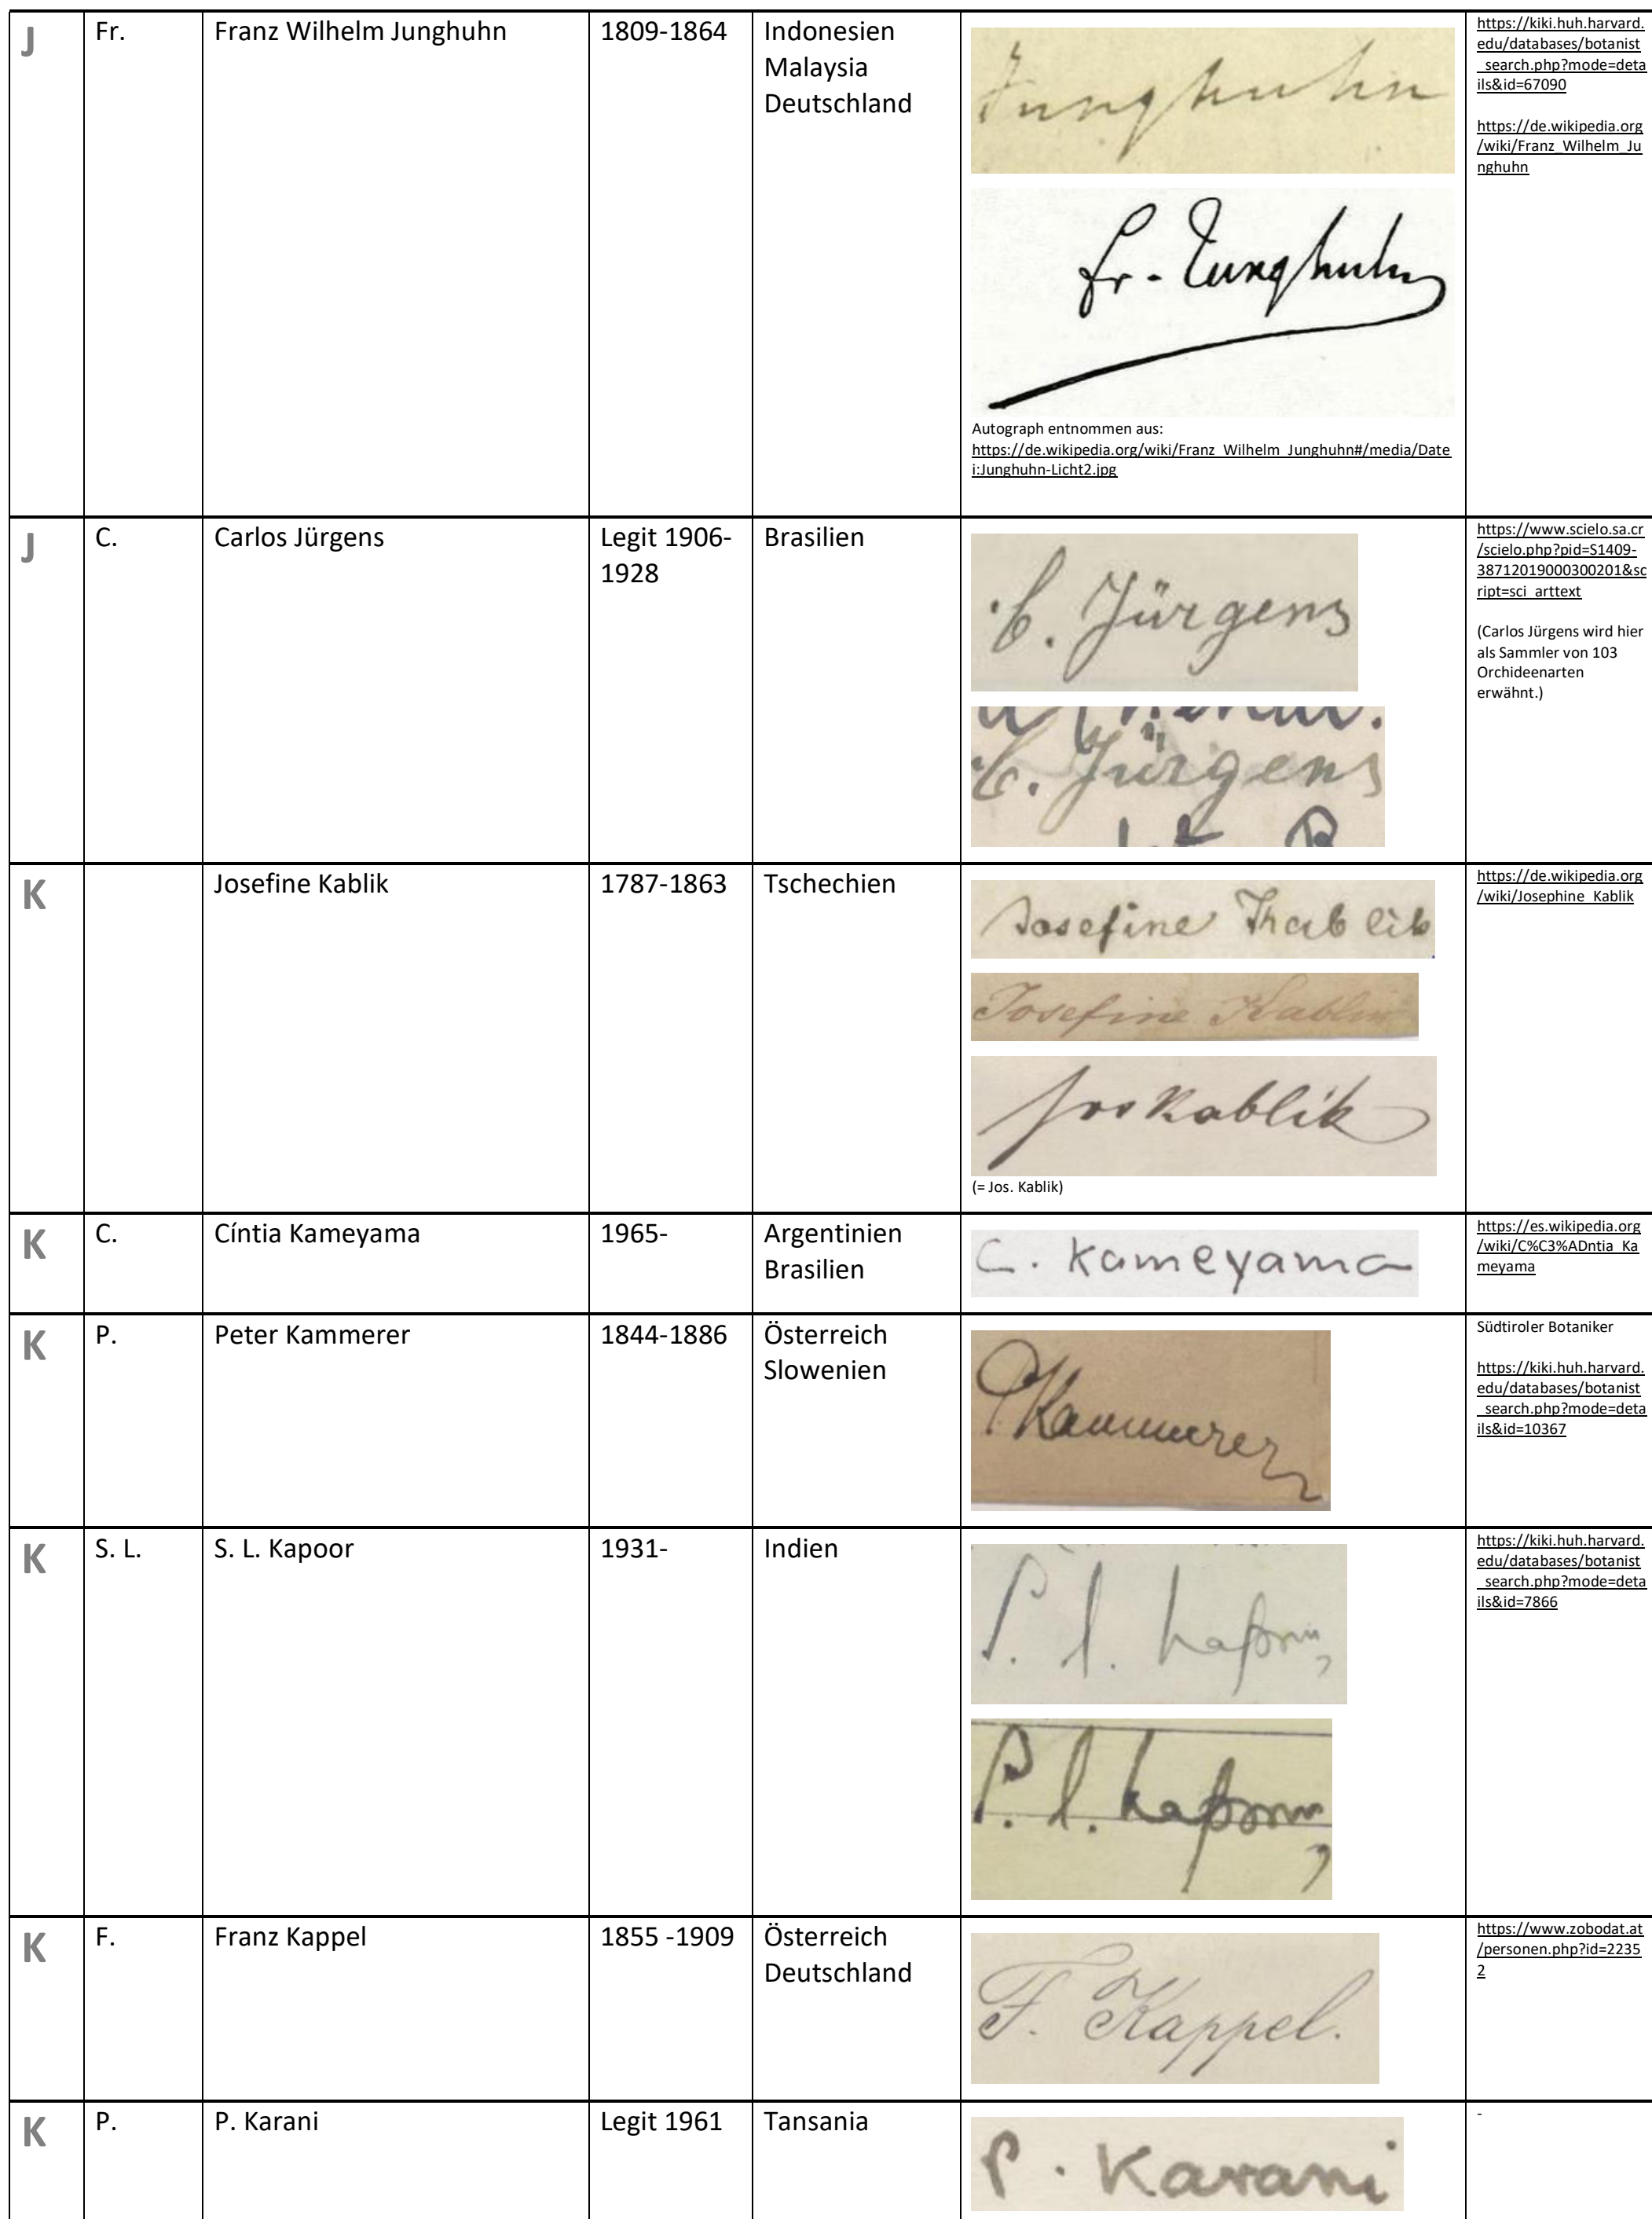 J
Fr.
Franz Wilhelm Junghuhn
1809-1864
Indonesien
Malaysia
Deutschland
Junghuhn
Fr. Junghuhn
Autograph entnommen aus:
https://de.wikipedia.org/wiki/Franz_Wilhelm_Junghuhn#/media/Date
i:Junghuhn-Licht2.jpg
https://kiki.huh.harvard.
edu/databases/botanist
_search.php?mode=deta
ils&id=67090
https://de.wikipedia.org
/wiki/Franz_Wilhelm_Ju
nghuhn
J
C.
Carlos Jürgens
Legit 1906-
1928
Brasilien
C. Jürgens
C. Jürgens
https://www.scielo.sa.cr
/scielo.php?pid=S1409-
38712019000300201&sc
ript=sci_arttext
(Carlos Jürgens wird hier
als Sammler von 103
Orchideenarten
erwähnt.)
K
Josefine Kablik
1787-1863
Tschechien
Josefine Kablik
Josefine Kablik
Jos Kablik
(= Jos. Kablik)
https://de.wikipedia.org
/wiki/Josephine_Kablik
K
C.
Cíntia Kameyama
1965-
Argentinien
Brasilien
C. Kameyama
https://es.wikipedia.org
/wiki/C%C3%ADntia_Ka
meyama
K
P.
Peter Kammerer
1844-1886
Österreich
Slowenien
P Kammerer
Südtiroler Botaniker
https://kiki.huh.harvard.
edu/databases/botanist
_search.php?mode=deta
ils&id=10367
K
S. L.
S. L. Kapoor
1931-
Indien
S. L. Kapoor
S. L. Kapoor
https://kiki.huh.harvard.
edu/databases/botanist
_search.php?mode=deta
ils&id=7866
K
F.
Franz Kappel
1855 -1909
Österreich
Deutschland
F. Kappel.
https://www.zobodat.at
/personen.php?id=2235
2
K
P.
P. Karani
Legit 1961
Tansania
P. Karani
-